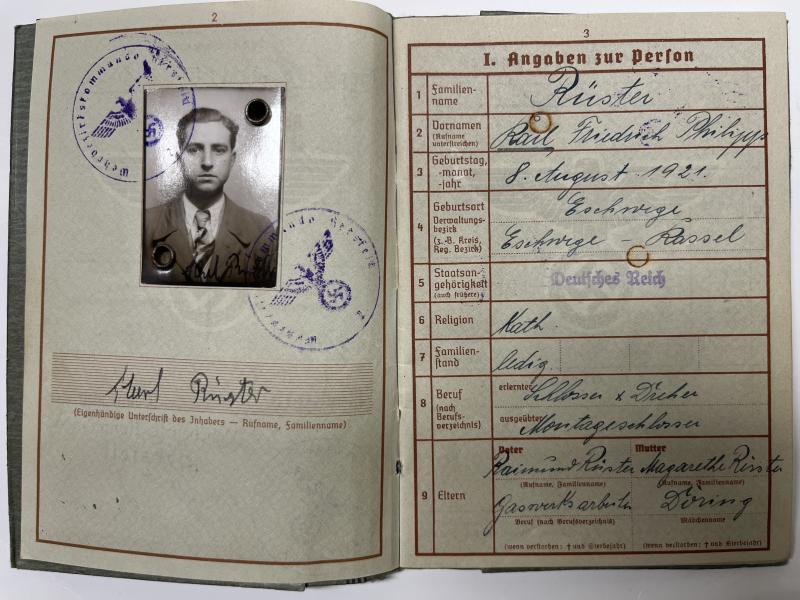 2
Karl Rüster
(Eigenhändige Unterschrift des Inhabers — Rufname, Familienname)
3
I. Angaben zur Person
1 Familien-
name
Rüster
2 Vornamen
(Rufname
unterstreichen)
Karl Friedrich Philipp
3 Geburtstag,
-monat,
-jahr
8. August 1921.
4 Geburtsort
Verwaltungs-
bezirk
(z.B. Kreis,
Reg. Bezirk)
Eschwege
Eschwege – Kassel
5 Staatsan-
gehörigkeit
(auch frühere)
Deutsches Reich
6 Religion
Kath.
7 Familien-
stand
ledig.
8 Beruf
(nach
Berufs-
verzeichnis)
erlernter
Schlosser & Dreher
ausgeübter
Montageschlosser
9 Eltern
Vater Mutter
Raimund Rüster Magarethe Rüster
(Rufname, Familienname) (Rufname, Familienname)
Gaswerksarbeiter Döring
Beruf (nach Berufsverzeichnis) Mädchenname
(wenn verstorben: † und Sterbejahr) (wenn verstorben: † und Sterbejahr)